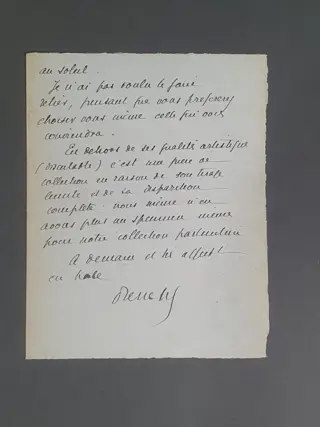 au soleil.
Je n'ai pas voulu le faire
relier, pensant que vous préférerez
choisir vous même celle qui vous
conviendra.
En dehors de ses qualité artistique
(discutable) c'est une pièce de
collection en raison de son tirage
limité et de sa disparition
complète. nous même n'en
avons plus un spécimen même
pour notre collection particulière
A demain et très affect!
en hâte